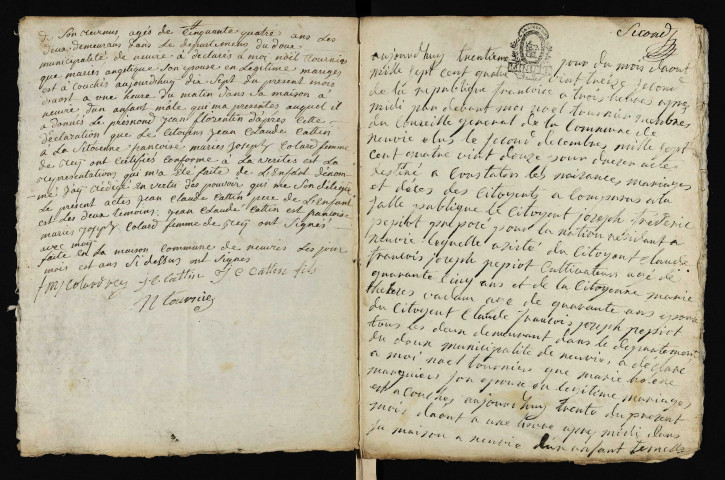 de Son agés de Cinquante quatre ans Les
deux demeurans dans Le departement du doux
municipalité de neuvie à déclarés a moi nöel tournier
que maries angelique Son epouse en Legitime mariges
est à Couchés aujourdhuy dix Sept du present mois
daoat a une heure du matin dans Sa maison à
neuvie dun anfant mâle qui ma presentes auquel il
a donnés Le prenond jean florentin daprès Cette
déclaration que Le Citoyens jean Claude Cattin
& La Sitoienne françoise maries joseph Colard femme
de ont Certifiés Conforme a La verites est La
representations qui m'a été faite de L'Enfant dénom
mé Jay rédigé en vertu des pouvoir qui me Son délégué
Le present actes jean Claude Cattin pere de L'Enfant
est Les deux temoins jean Claude Cattin est francoise
maries joseph Colard femme de ont Signés
avec moy
faite en La maison Commune de neuvies Les jour
mois est ans Si dessus ont Signés
f m j Colard J C Cattin J C Cattin fils
N tournier
Second
aujourdhuy trentieme jour du mois daout
mille sept cent quatre vint treize second
de la republique francoise a trois heures apres
midi par devant moi noel tournier membres
du Conseille general de la Commune de
neuvie elus le second decembres mille sept
cent quatre vint douze pour dresser actes
destiné a Constater les naisances mariages
et déces des Citoyents a Comparus a la
salle publique le Citoyent joseph fréderic
pepiot preposé pour la nation résidant a
neuvie loquelle asisté du Citoyent Claude
francois joseph pepiot Cultivateurs agé de
quarante Cinq ans et de la Citoyenne marie
therese agé de quarante ans epouse
du Citoyent Claude francois joseph pepiot
tous les deux demeurant dans le departement
du doux municipalite de neuvie, a déclaré
a moi noel tourniers que marie
son epouse en legitime mariages
est a Couches aujourdhuy trente du present
mois daout a une heure apres midi dans
sa maison a neuvie dun anfant femelle